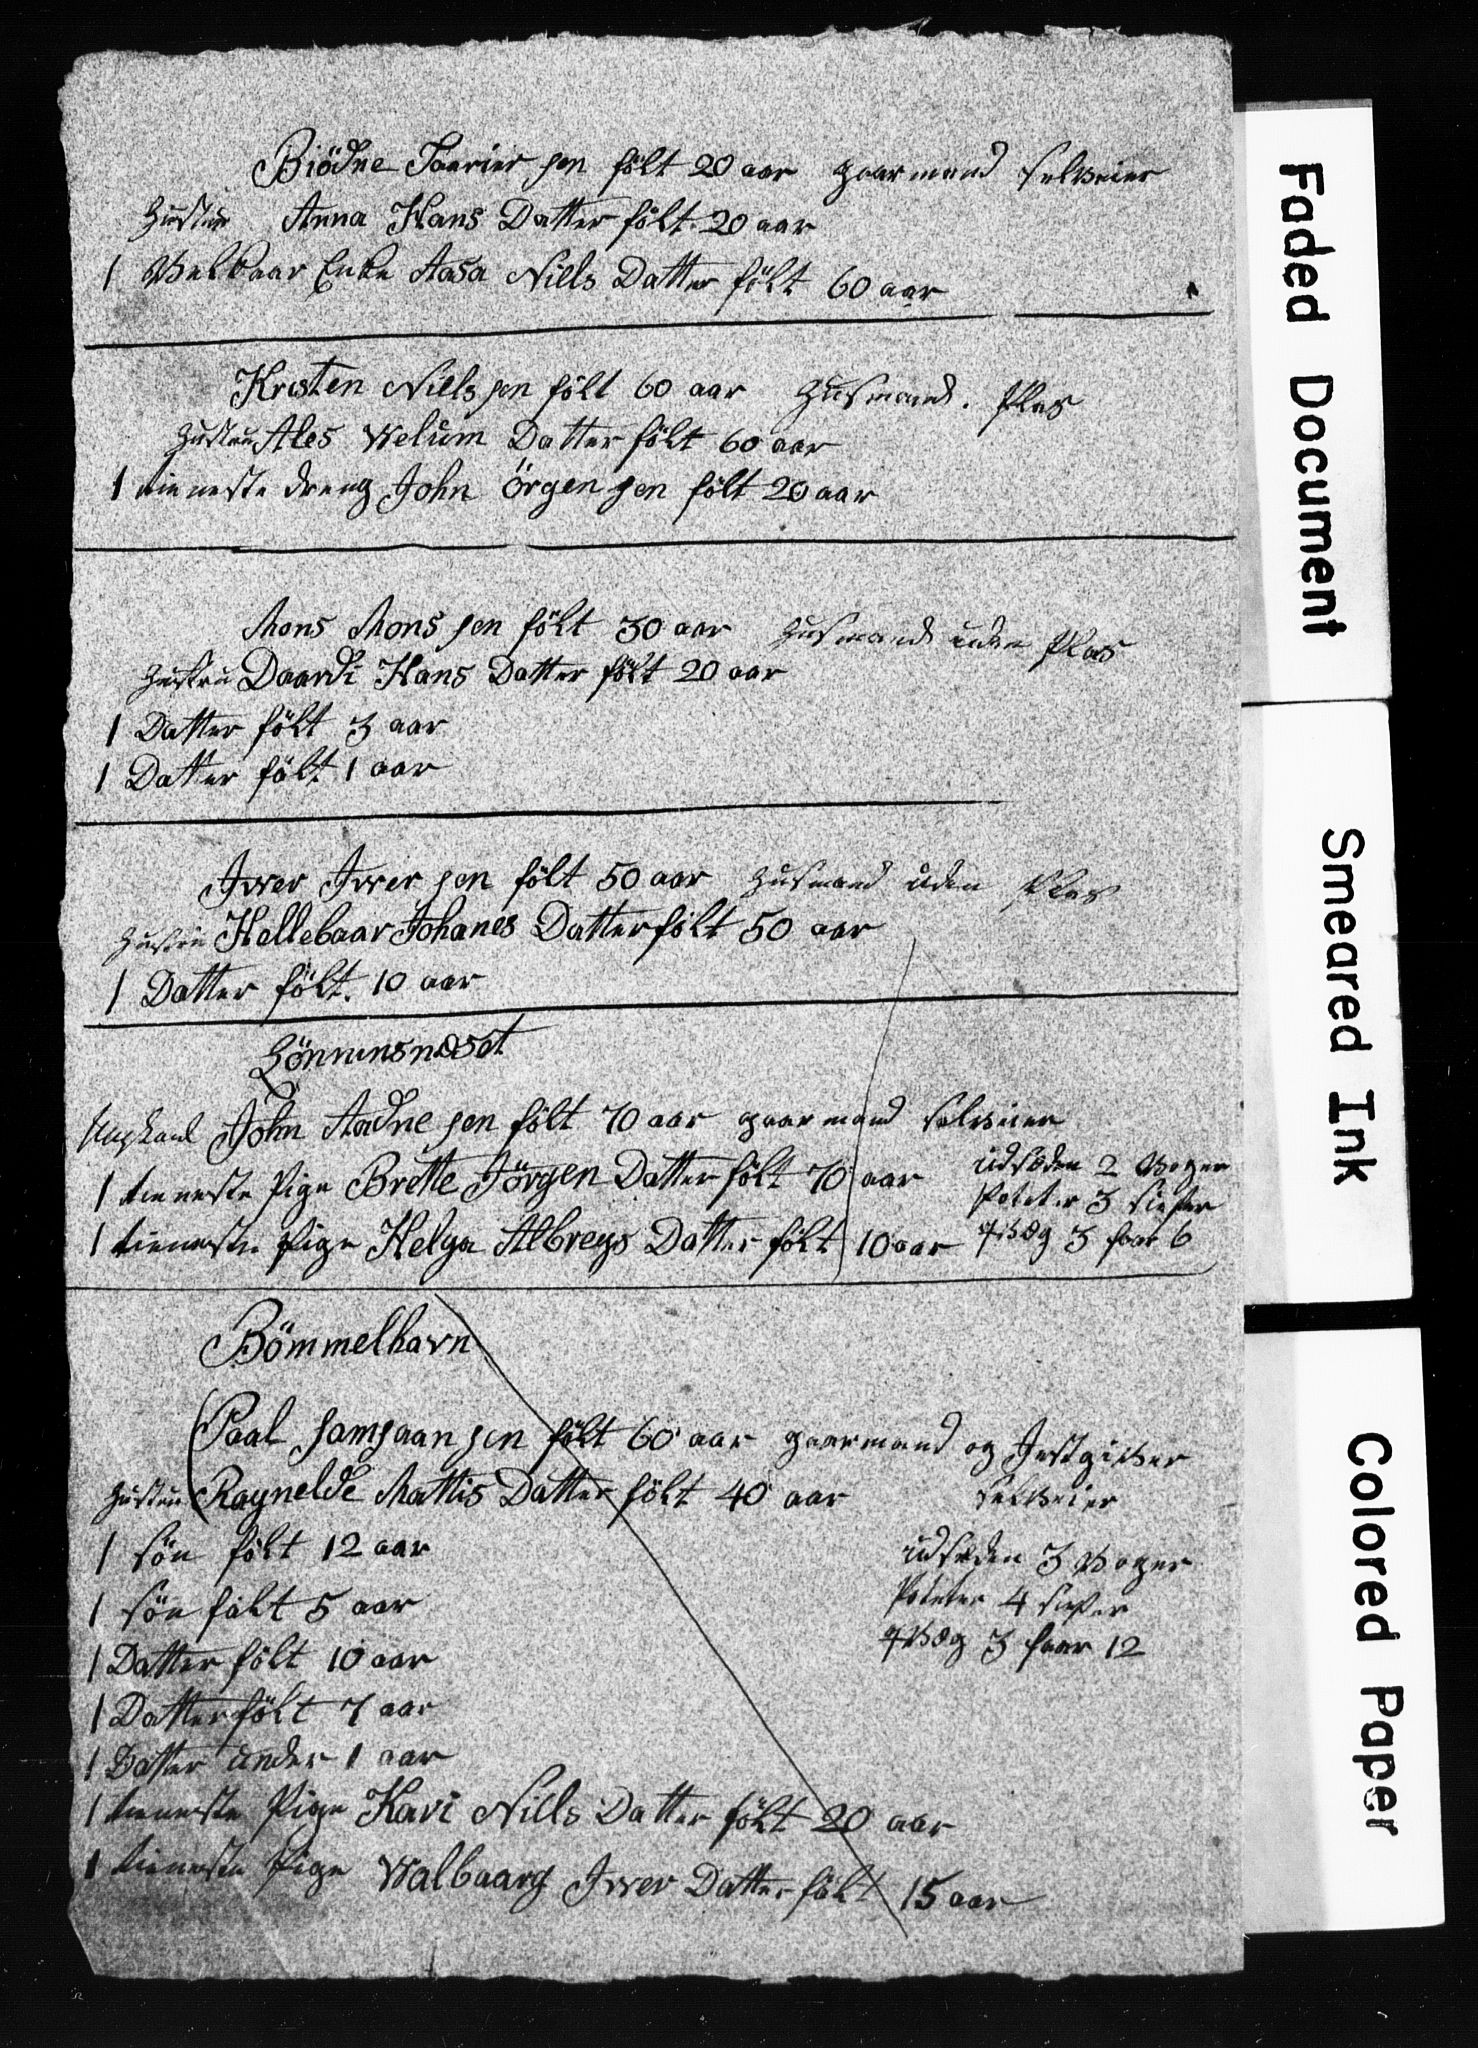 Biödne Taarier sen fölt 20 aar gaarmand selveier
Hustru Anna Hans Datter fölt 20 aar
1 Velbaar Enke Aasa Niels Datter fölt 60 aar
Kresten Niels sen fölt 60 aar Husmand. Plas
Hustru Ales Welum Datter fölt 60 aar
1 tieneste dreng John Örgen sen fölt 20 aar
Mons Mons sen fölt 30 aar Husmand uden Plas
Hustru Daardi Hans Datter fölt 20 aar
1 Datter fölt 3 aar
1 Datter fölt 1 aar
Jwer Jwer sen fölt 50 aar Husmand uden Plas
Hustru Hellebaar Johanes Datter fölt 50 aar
1 Datter fölt. 10 aar
Lönnensnæset
Ungkaal John Aadne sen fölt 70 aar gaarmand selveier
1 tieneste Pige Brette Jörgen Datter fölt 70 aar udsæden 2 Voger
Poteter 3 siefer
1 tieneste Pige Helga Albregs Datter fölt 10 aar qvæg 3 faar 6
Bömmelhavn
Paal samsaan sen fölt 60 aar gaarmand og Jestgiver
Hustru Raynelde Mattis Datter fölt 40 aar selveier
1 sön fölt 12 aar udsæden 3 Voger
1 sön fölt 5 aar Poteter 4 siefer
1 Datter fölt 10 aar qvæg 3 faar 12
1 Datter fölt 7 aar
1 Datter under 1 aar
1 tieneste Pige Kari Nills Datter fölt 20 aar
1 tieneste Pige Walbaarg Jwer Datter fölt 15 aar
Faded Document
Smeared Ink
Colored Paper